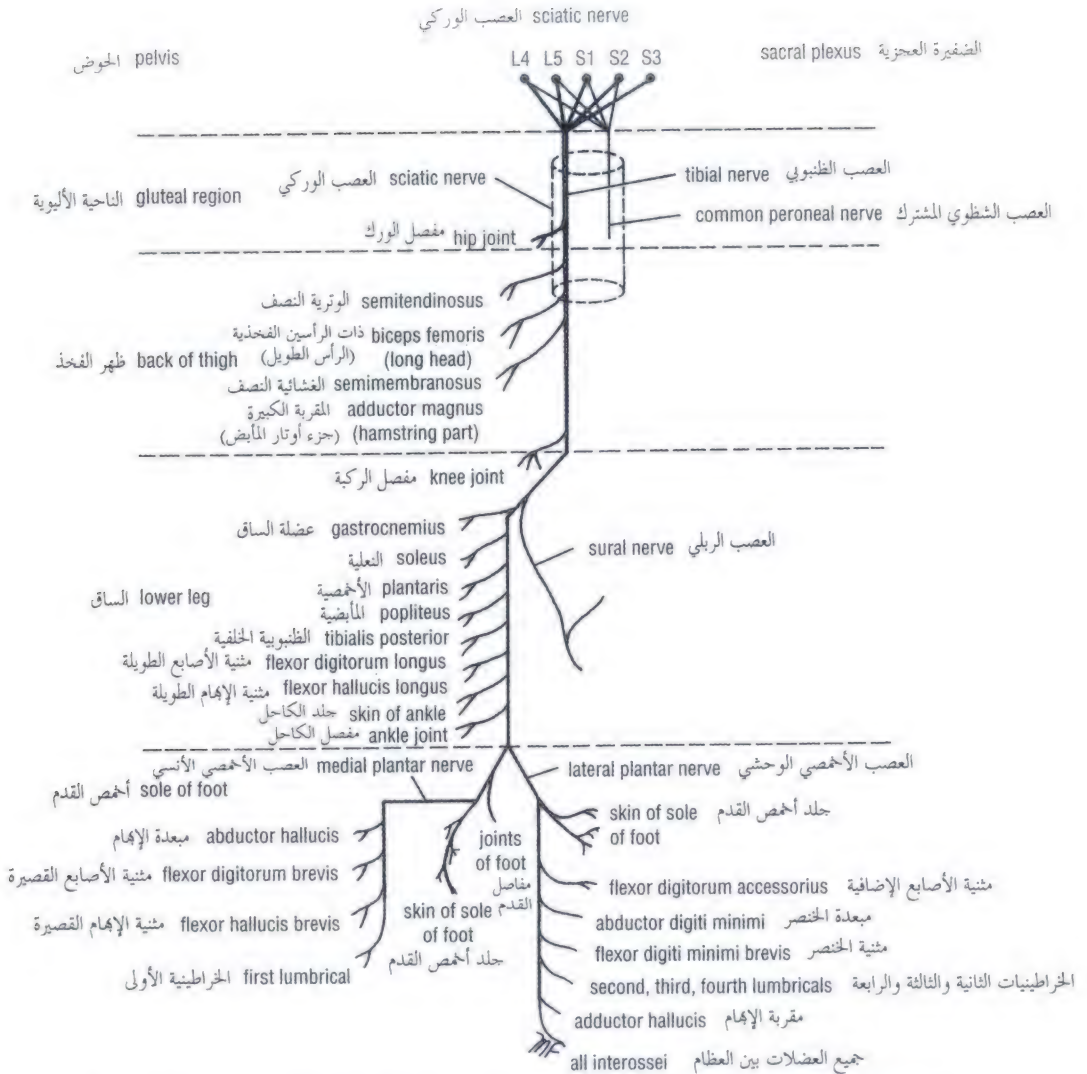 العصب الوركي sciatic nerve
الحوض pelvis
L4 L5 S1 S2 S3
sacral plexus الضفيرة العجزية
العصب الوركي sciatic nerve
tibial nerve العصب الظنبوبي
الناحية الأليوية gluteal region
common peroneal nerve العصب الشظوي المشترك
مفصل الورك hip joint
الوترية النصف semitendinosus
ذات الرأسين الفخذية biceps femoris
ظهر الفخذ back of thigh
(الرأس الطويل) (long head)
الغشائية النصف semimembranosus
المقربة الكبيرة adductor magnus
(جزء أوتار المأبض) (hamstring part)
مفصل الركبة knee joint
عضلة الساق gastrocnemius
sural nerve العصب الربلي
النعلية soleus
الأخمصية plantaris
الساق lower leg
المأبضية popliteus
الظنبوبية الخلفية tibialis posterior
مثنية الأصابع الطويلة flexor digitorum longus
مثنية الإبهام الطويلة flexor hallucis longus
جلد الكاحل skin of ankle
مفصل الكاحل ankle joint
العصب الأخمصي الأنسي medial plantar nerve
lateral plantar nerve العصب الأخمصي الوحشي
أخمص القدم sole of foot
skin of sole جلد أخمص القدم
of foot
مبعدة الإبهام abductor hallucis
joints
of foot
مفاصل
القدم
مثنية الأصابع القصيرة flexor digitorum brevis
flexor digitorum accessorius مثنية الأصابع الإضافية
skin of sole
of foot
جلد أخمص القدم
مثنية الإبهام القصيرة flexor hallucis brevis
abductor digiti minimi مبعدة الخنصر
flexor digiti minimi brevis مثنية الخنصر
الخراطينية الأولى first lumbrical
second, third, fourth lumbricals الخراطينيات الثانية والثالثة والرابعة
adductor hallucis مقربة الإبهام
all interossei جميع العضلات بين العظام